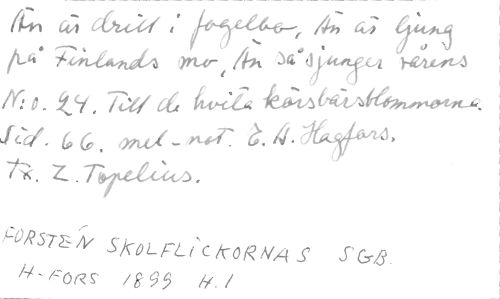 Än är drill i fogelbo, Än är ljung
på Finlands mo, Än så sjunger vårens
N:o. 24. Till de hvita körsbärsblommorna.
Sid. 66. mel-not. E. A. Hagfors.
Tx. Z. Topelius.
FORSTÉN SKOLFLICKORNAS SGB.
H-FORS 1899 H.1